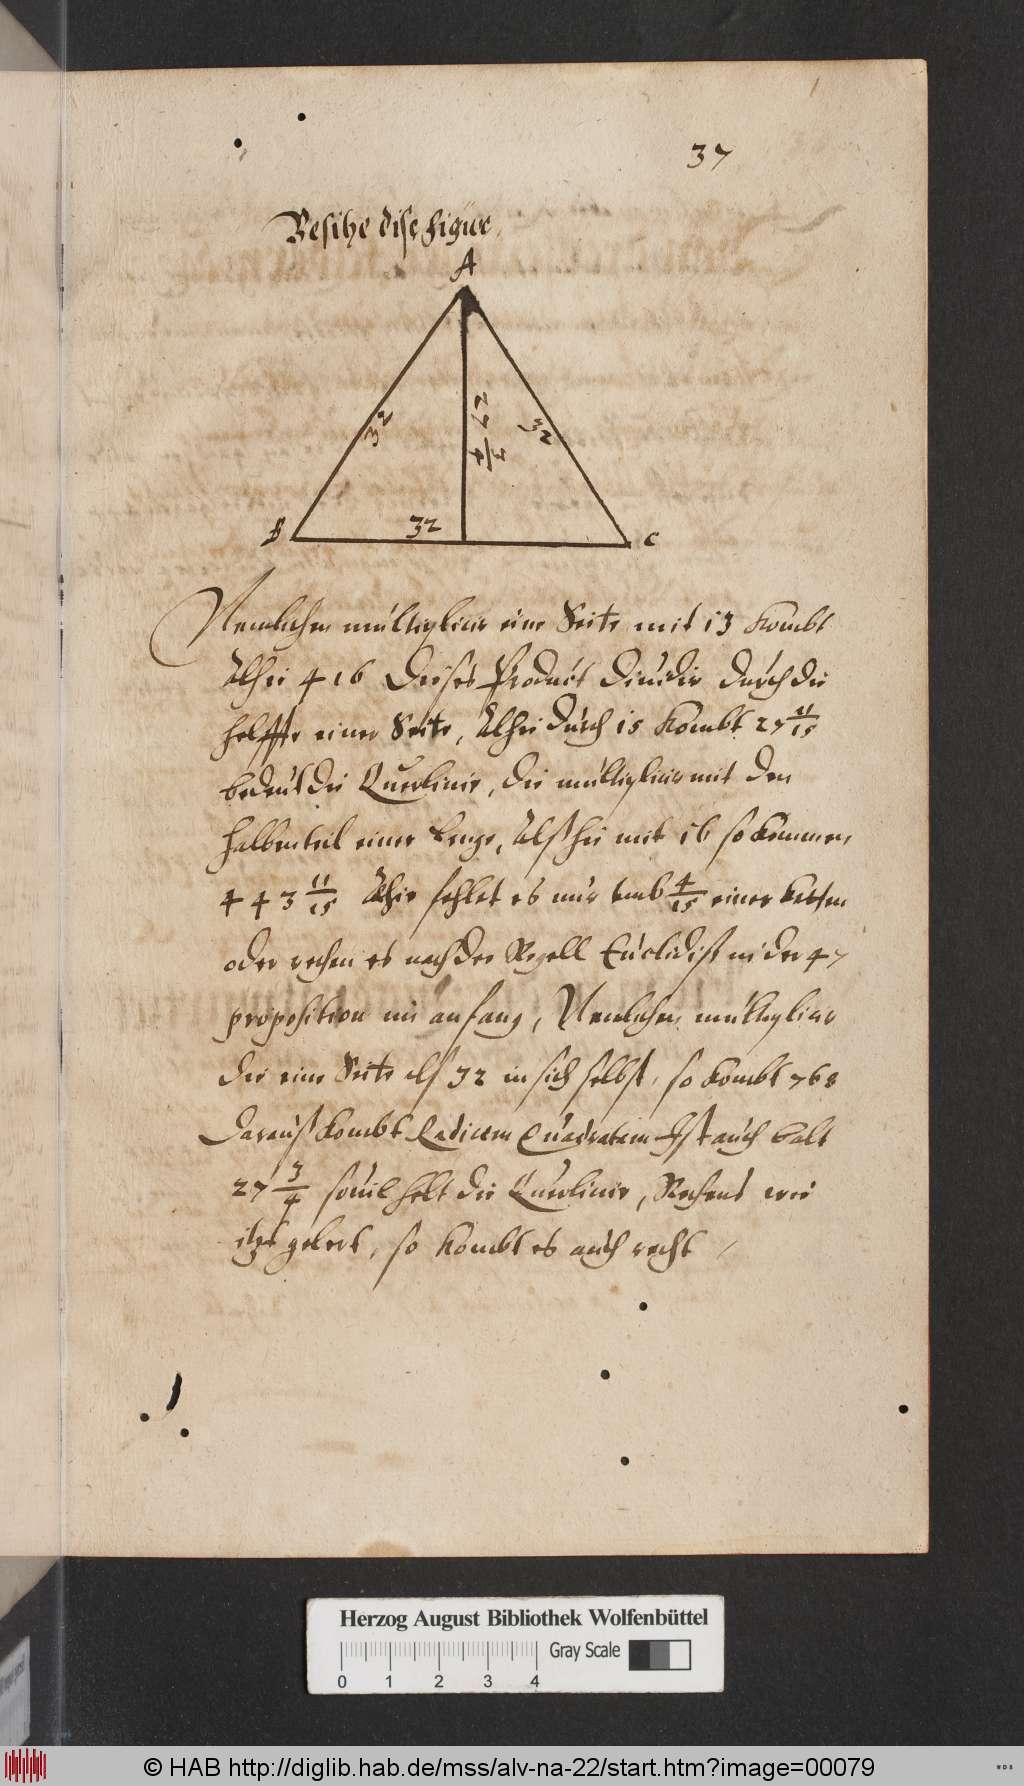 37
Besihe dise figur
A
32
27 3/4
32
B
32
C
Nemlichen multiplicir eine Seite mit 13 kombt
Alhie 416 Dieses Product diuidir durch die
helffte einer Seite, Alhie durch 15 kombt 27 11/15
bedeut die Querlinie, die multiplicir mit den
halben teil einer lenge, Alß hie mit 16 so kommen
443 11/15 Alhie fehlet es nur umb 4/15 einer
oder rechen es nach der Regell Euclidiß in der 47
proposition im anfang, Nemlichen multiplicir
die eine Seite als 32 in sich selbst, so kombt 768
darauß kombt Radicem Quadratam Ist auch balt
27 3/4 souil helt die Querlinie, Rechens wie
itzt gelert, so kombt es auch recht
Herzog August Bibliothek Wolfenbüttel
Gray Scale
0 1 2 3 4
© HAB http://diglib.hab.de/mss/alv-na-22/start.htm?image=00079